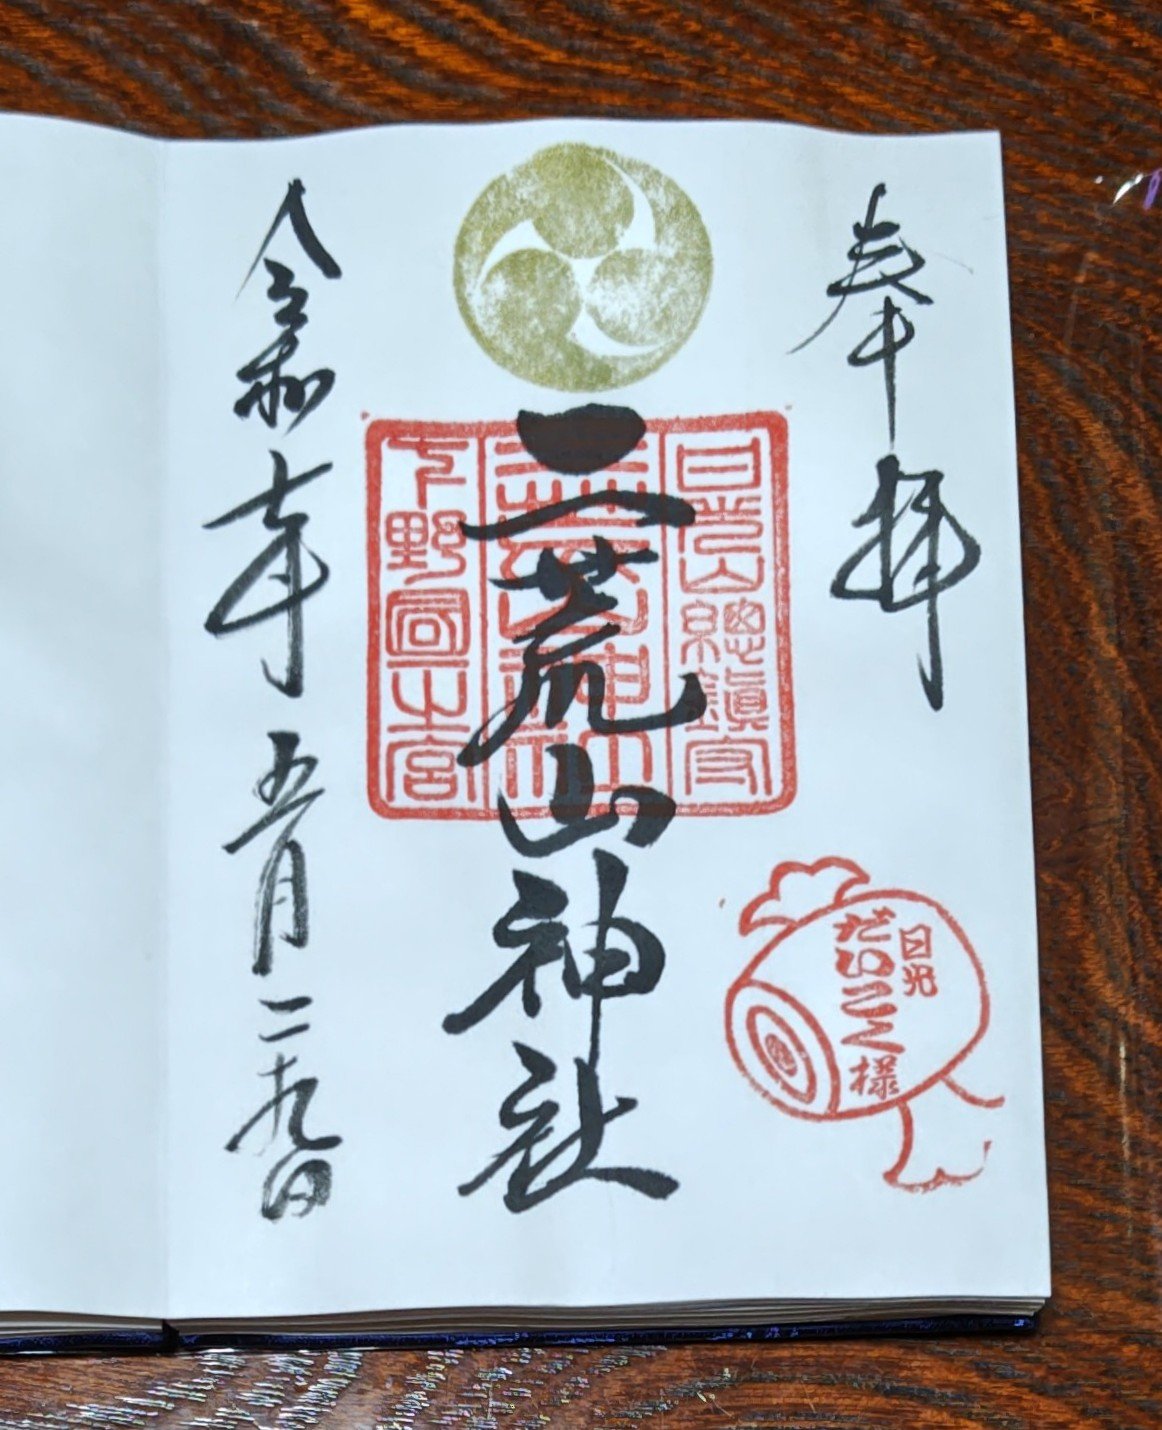 奉拝
日光山總鎭守
二荒山神社
下野國一之宮
二荒山神社
令和七年五月二十九日
日光
だいこく様